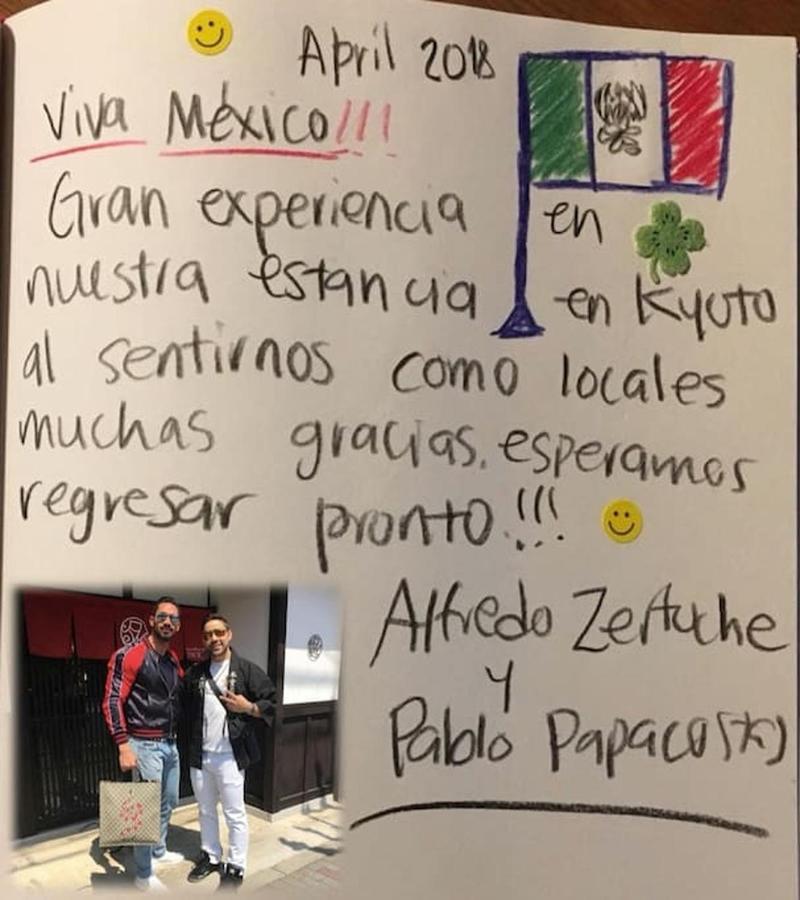 April 2018
Viva México!!!
Gran experiencia en
nuestra estancia en Kyoto
al sentirnos como locales
muchas gracias, esperamos
regresar pronto!!!
Alfredo Zertuche
y
Pablo